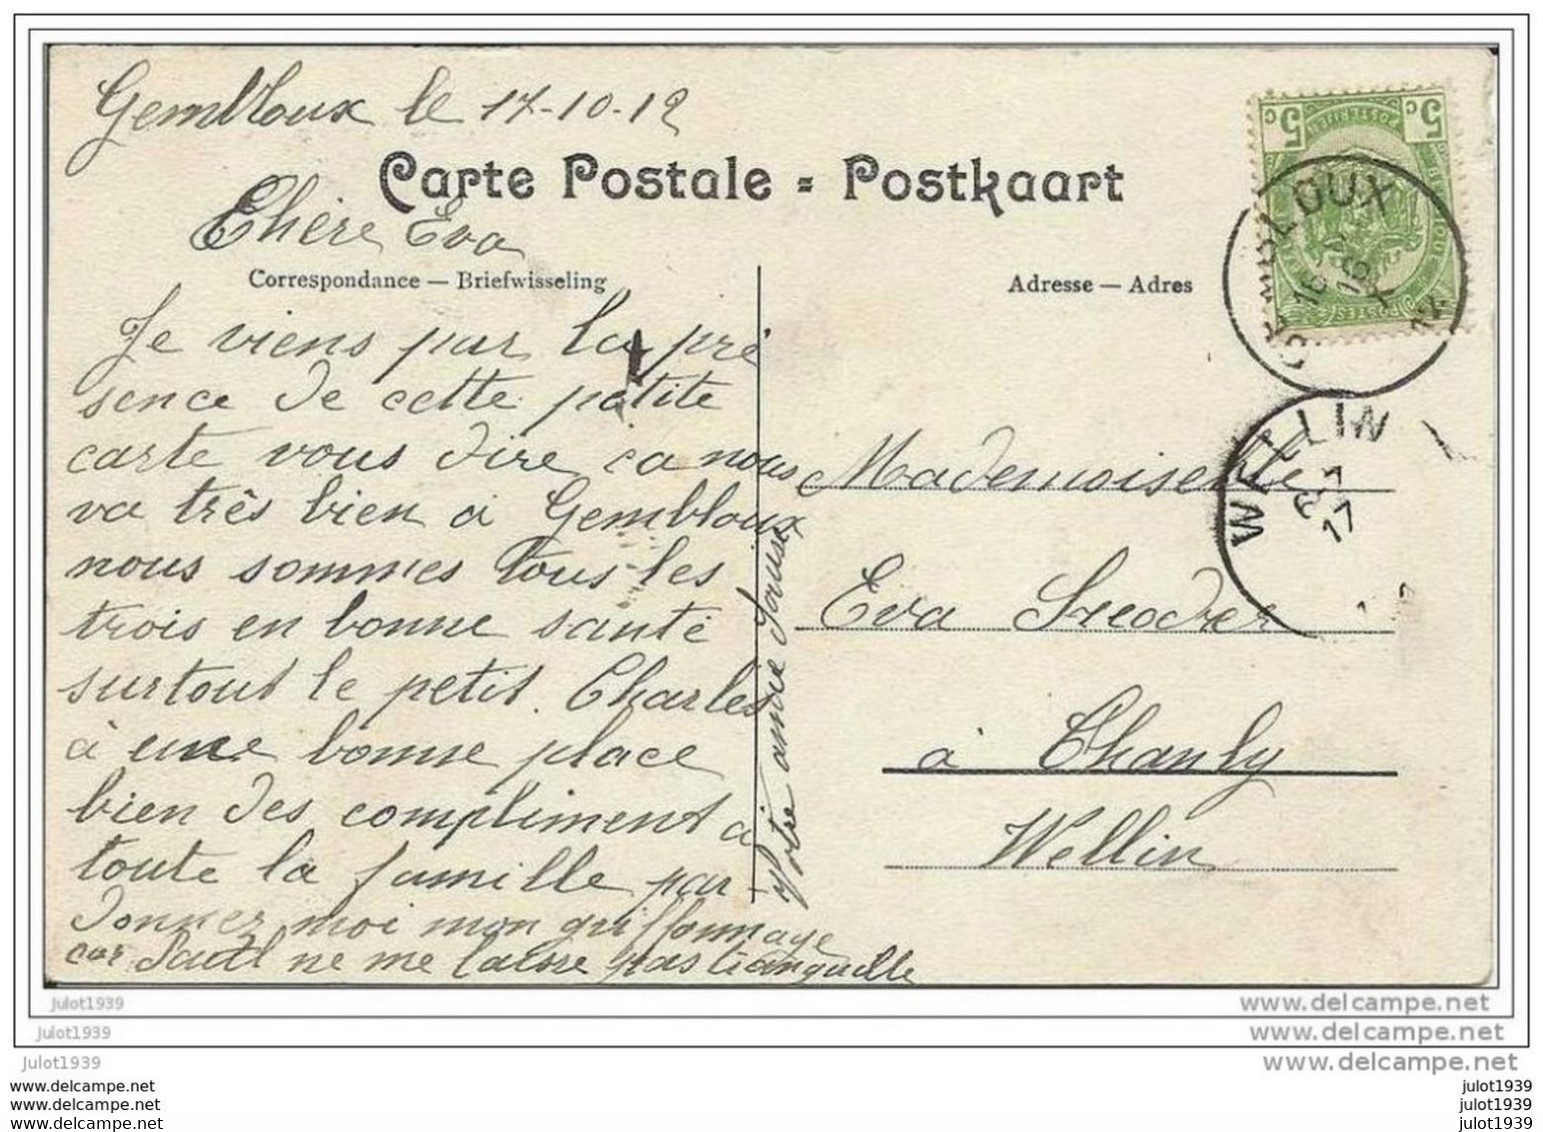 Gembloux le 17-10-12
Carte Postale = Postkaart
Chère Eva
Correspondance — Briefwisseling
Adresse — Adres
Je viens par la pré
sence de cette petite
carte vous dire ca nous
va très bien à Gembloux
nous sommes tous les
trois en bonne santé
surtout le petit. Charles
à une bonne place
bien des compliment à
toute la famille par
donnez moi mon griffonnage
car Paul ne me laisse pas tranquille
Votre amie
5 c 5 c
GEMBLOUX
16
16
X
12
WELLIN
17
Mademoiselle
Eva
à Chanly
Wellin
julot1939
julot1939
julot1939
www.delcampe.net
www.delcampe.net
www.delcampe.net
www.delcampe.com
www.delcampe.com
www.delcampe.com
julot1939
julot1939
julot1939